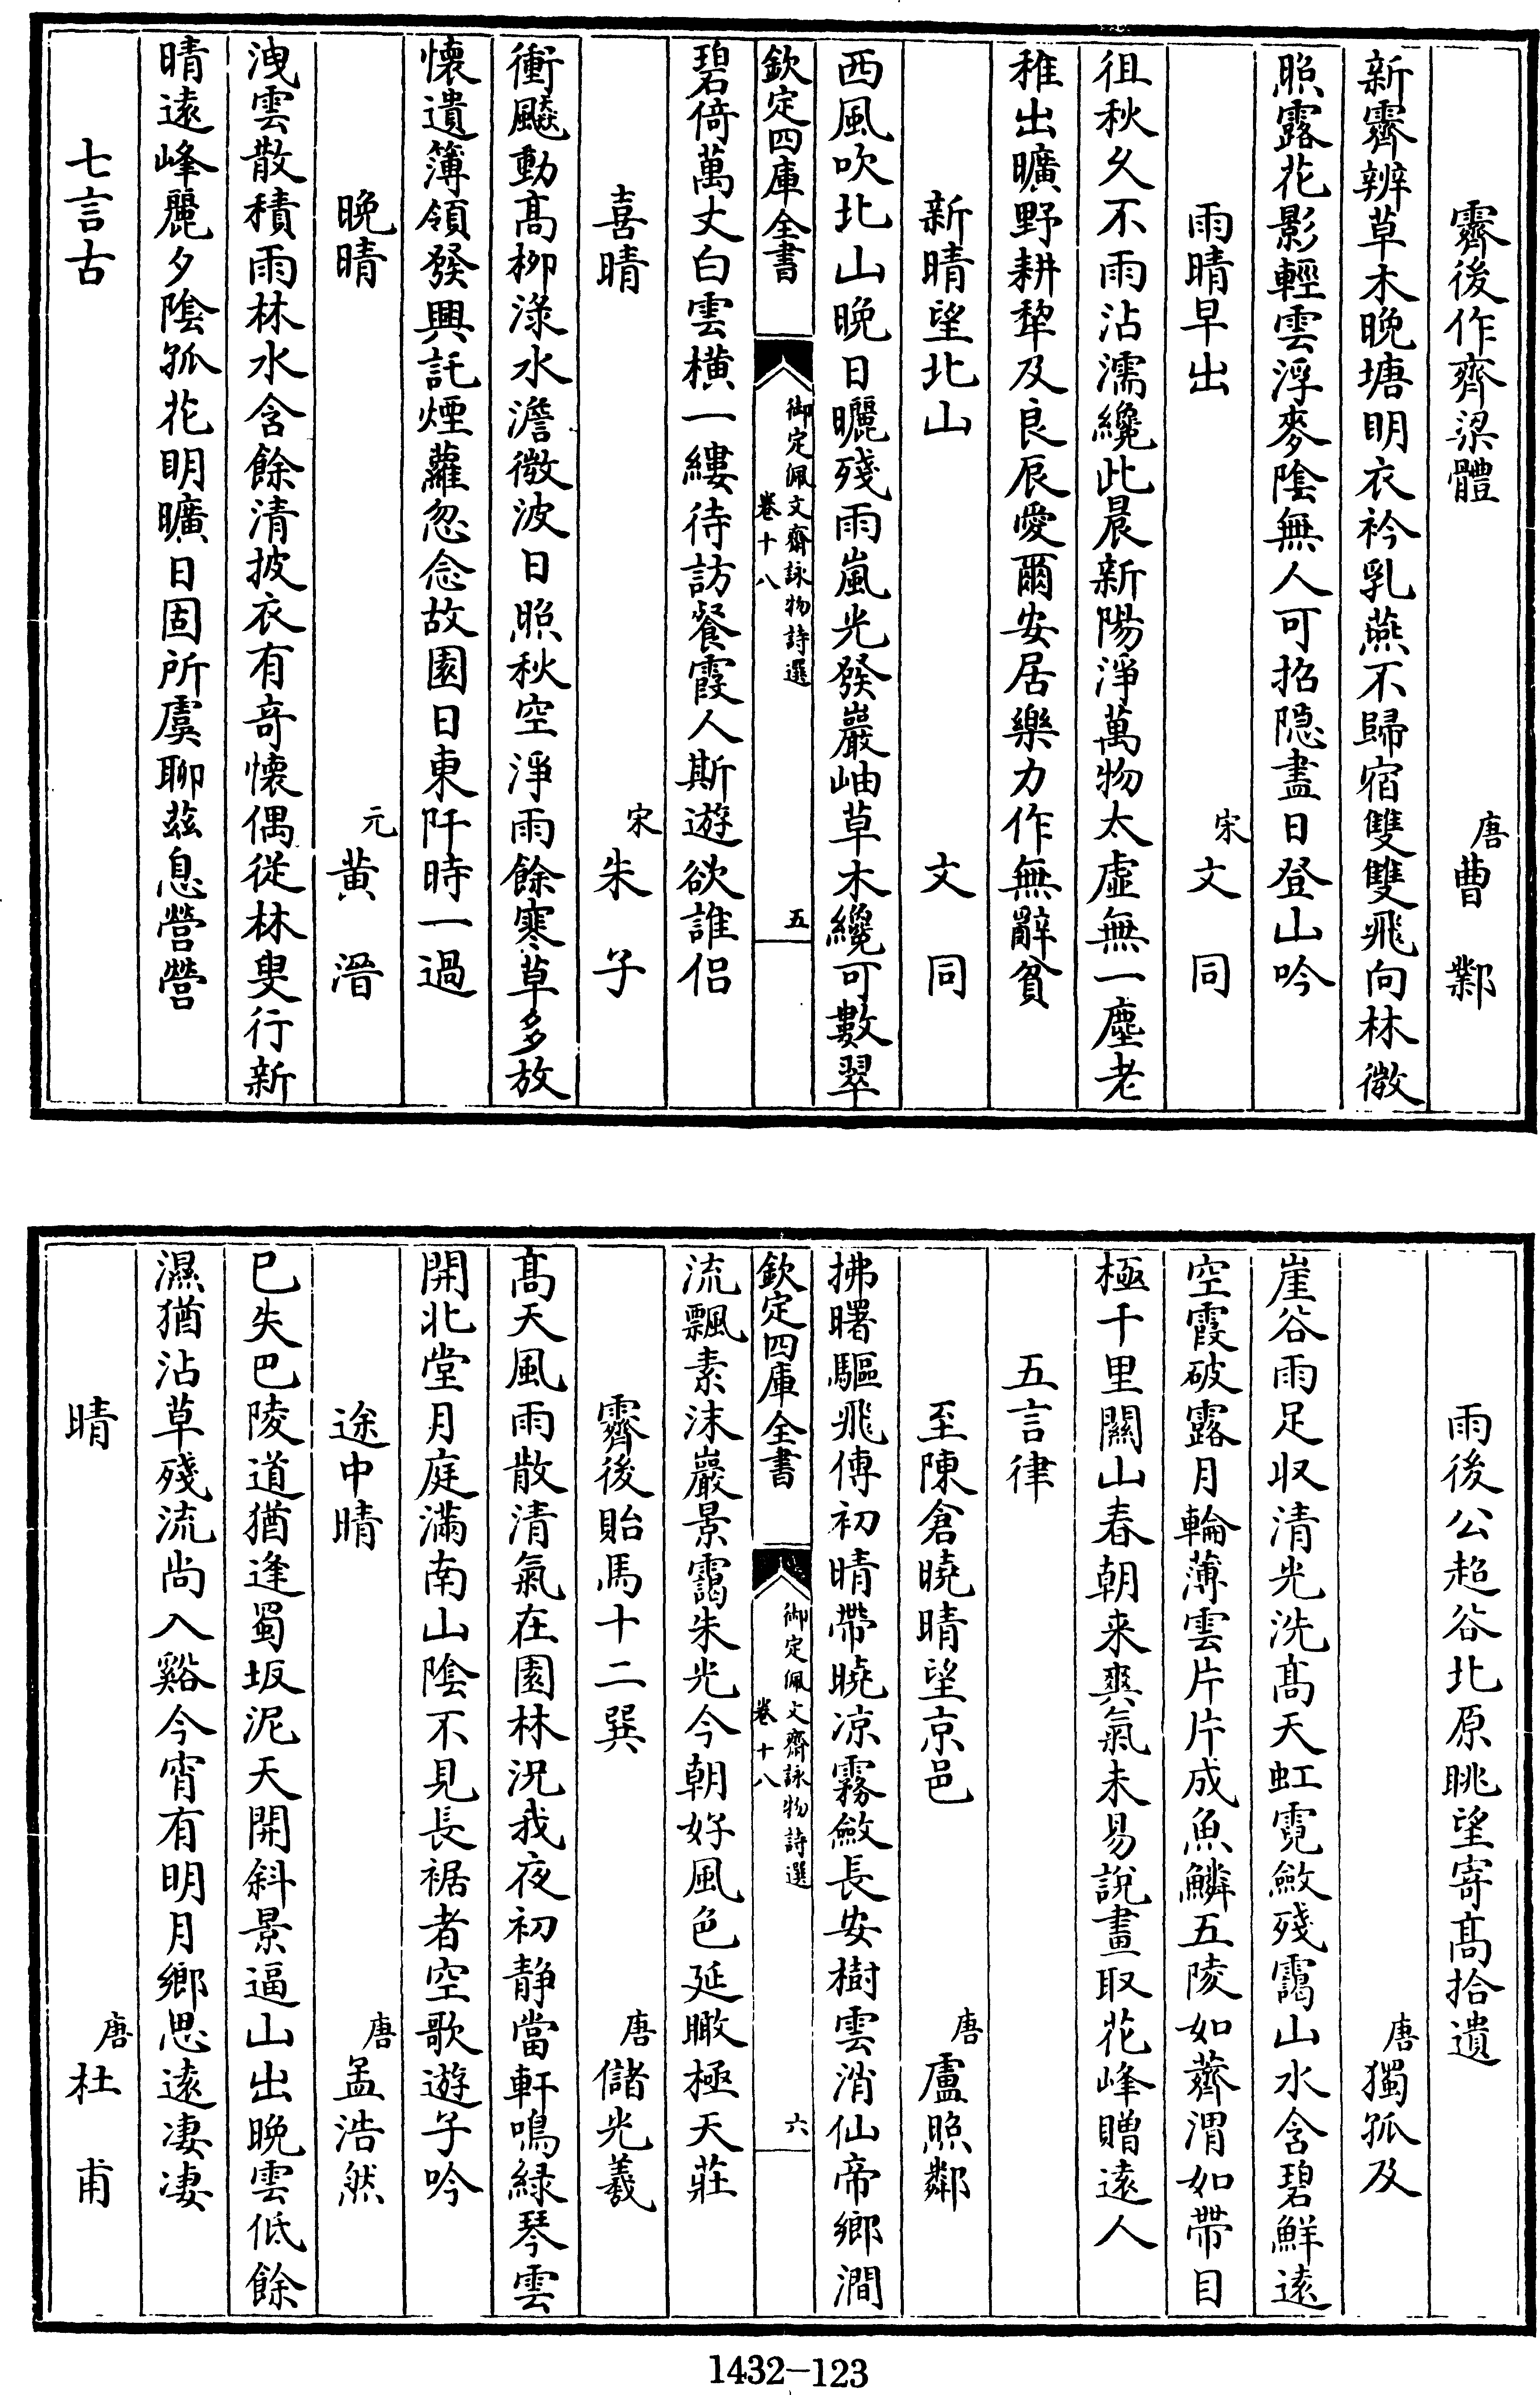 霽後作齊梁體
唐曹鄴
新霽辨草木晚塘明衣衿乳燕不歸宿雙雙飛向林微
照露花影輕雲浮麥陰無人可招隱盡日登山吟
雨晴早出
宋文同
徂秋久不雨沾濡纔此晨新陽淨萬物太虛無一塵老
稚出曠野耕犂及良辰愛爾安居樂力作無辭貧
新晴望北山
文同
西風吹北山晚日曬殘雨嵐光發巖岫草木纔可數翠
欽定四庫全書
御定佩文齋詠物詩選
卷十八
五
碧倚萬丈白雲橫一縷待訪餐霞人斯遊欲誰侣
喜晴
宋朱子
衝飈動髙栁渌水澹微波日照秋空淨雨餘寒草多放
懷遺簿領發興託煙蘿忽念故園日東阡時一過
晚晴
元黃溍
洩雲散積雨林水含餘清披衣有竒懷偶從林叟行新
晴遠峰麗夕陰孤花明曠日固所虞聊兹息營營
七言古
雨後公超谷北原眺望寄髙拾遺
唐獨孤及
崖谷雨足収清光洗髙天虹霓斂殘靄山水含碧鮮遠
空霞破露月輪薄雲片片成魚鱗五陵如薺渭如帶目
極千里關山春朝来爽氣未易說畫取花峰贈遠人
五言律
至陳倉曉晴望京邑
唐盧照鄰
拂曙驅飛傳初晴帶曉凉霧斂長安樹雲消仙帝鄉澗
欽定四庫全書
御定佩文齋詠物詩選
卷十八
六
流飄素沫巖景靄朱光今朝好風色延瞰極天莊
霽後貽馬十二巽
唐儲光羲
髙天風雨散清氣在園林況我夜初静當軒鳴緑琴雲
開北堂月庭滿南山陰不見長裾者空歌遊子吟
途中晴
唐孟浩然
已失巴陵道猶逢蜀坂泥天開斜景遍山出晚雲低餘
濕猶沾草殘流尚入谿今宵有明月鄉思遠凄凄
晴
唐杜甫
1432-123